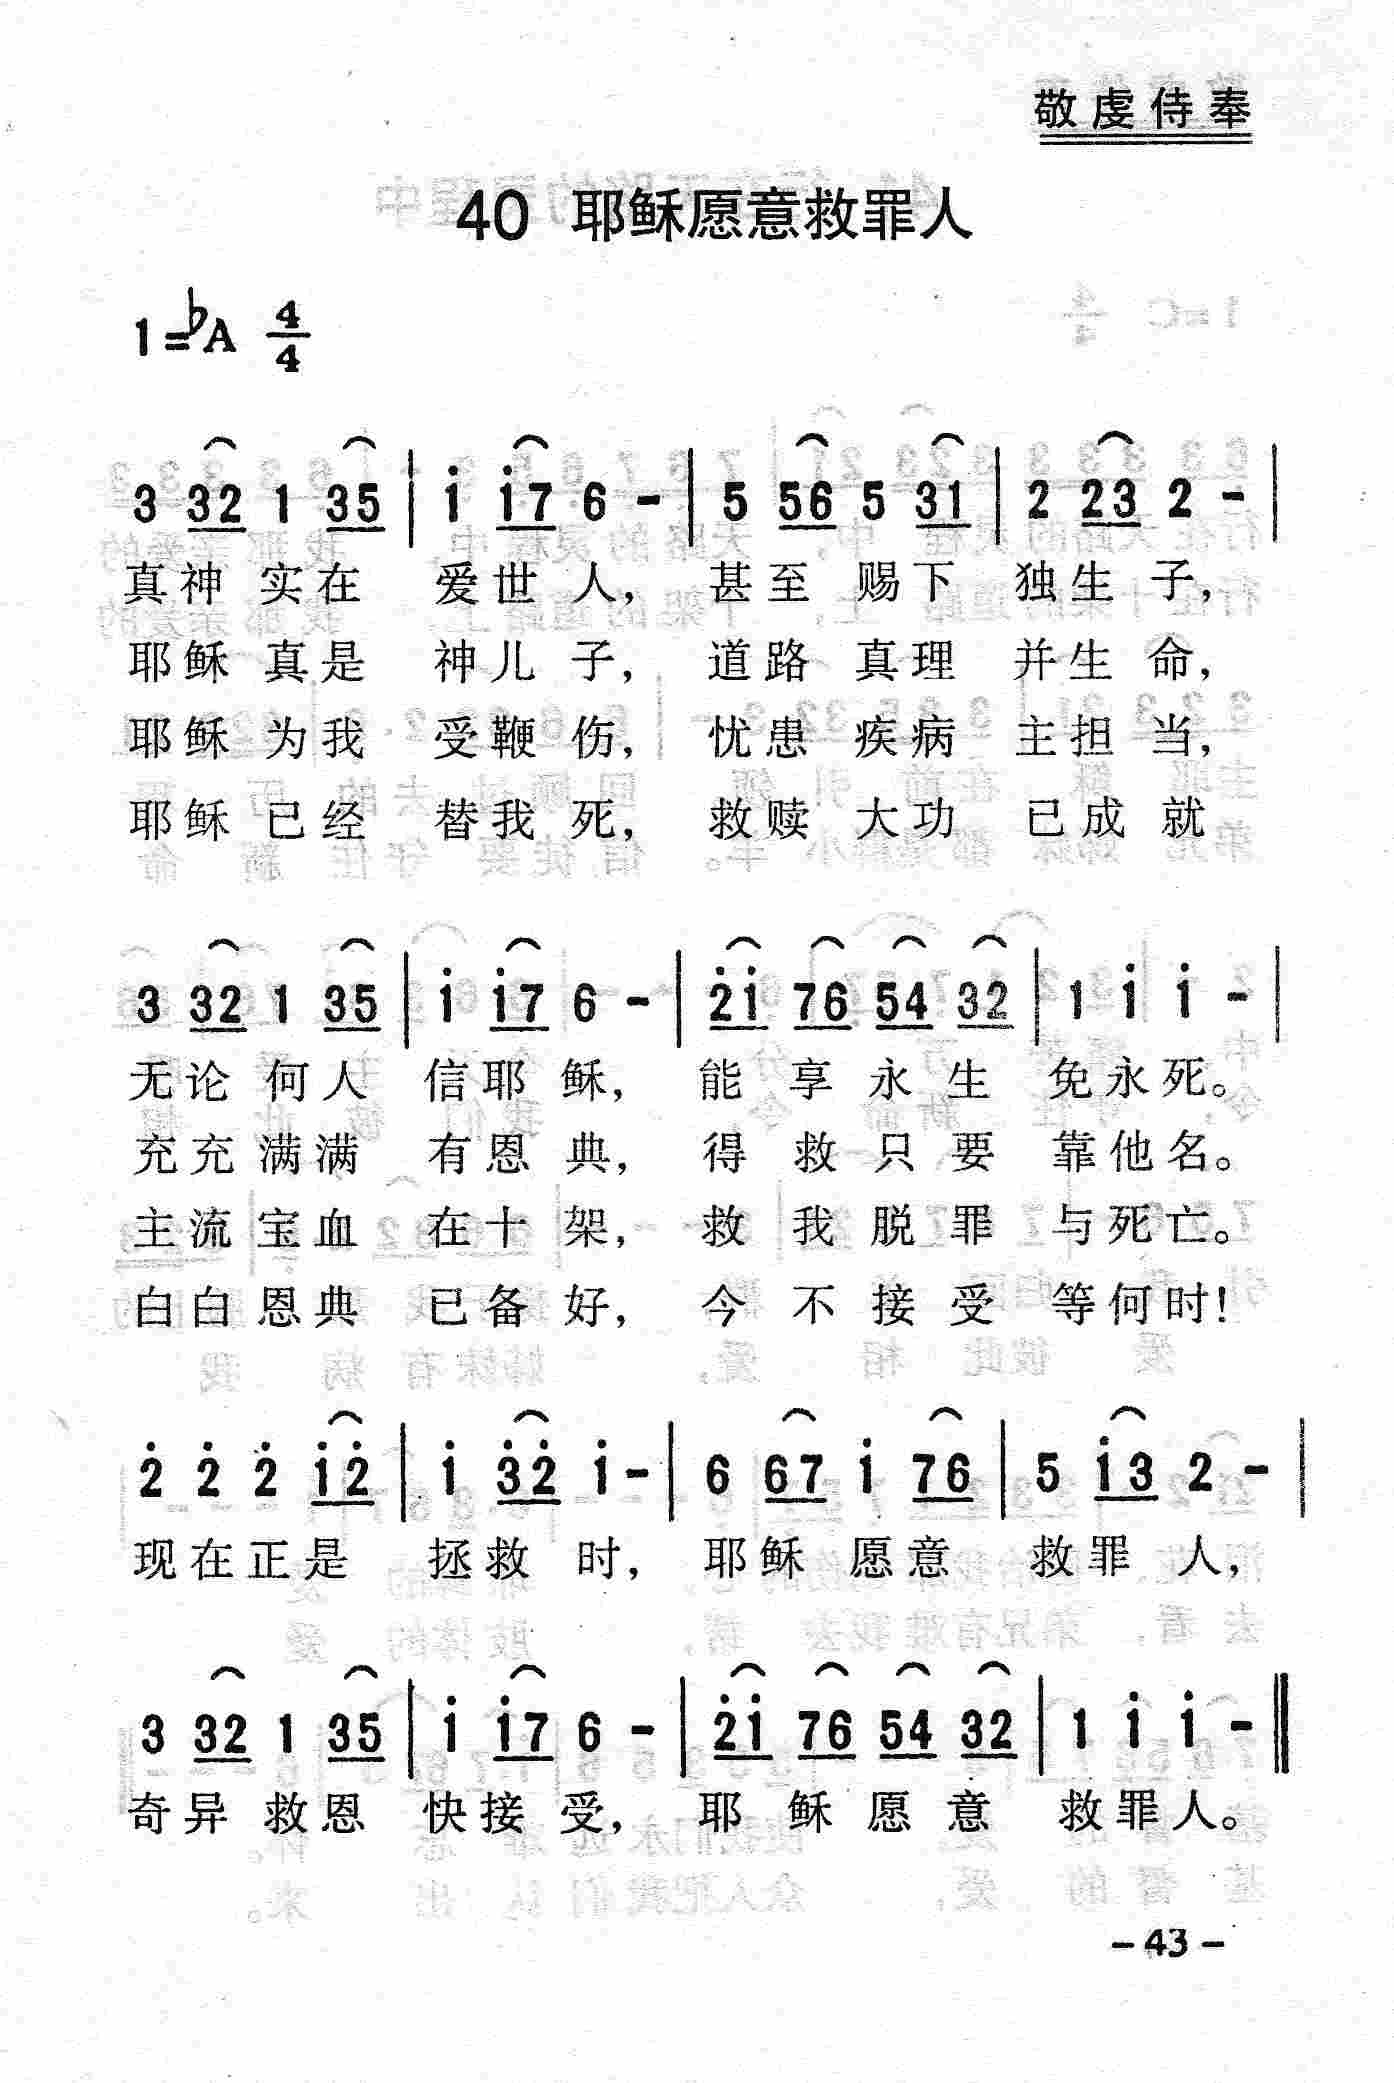 敬虔侍奉
40 耶稣愿意救罪人
1=♭A 4/4
3 32 1 35 | i i7 6 - | 5 56 5 31 | 2 23 2 - |
真神 实在 爱世 人, 甚至 赐下 独生 子,
耶稣 真是 神儿 子, 道路 真理 并生 命,
耶稣 为我 受鞭 伤, 忧患 疾病 主担 当,
耶稣 已经 替我 死, 救赎 大功 已成 就
3 32 1 35 | i i7 6 - | 2̇i 76 54 32 | 1 i i - |
无论 何人 信耶 稣, 能 享 永 生 免永死。
充充 满满 有恩 典, 得 救 只 要 靠他名。
主流 宝血 在十 架, 救 我 脱 罪 与死亡。
白白 恩典 已备 好, 今 不 接 受 等何时!
2̇ 2̇ 2̇ i2̇ | i 3̇2̇ i - | 6 67 i 76 | 5 i3 2 - |
现在正是 拯救 时, 耶稣 愿意 救罪 人,
3 32 1 35 | i i7 6 - | 2̇i 76 54 32 | 1 i i - ‖
奇异 救恩 快接 受, 耶 稣 愿 意 救罪人。
- 43 -